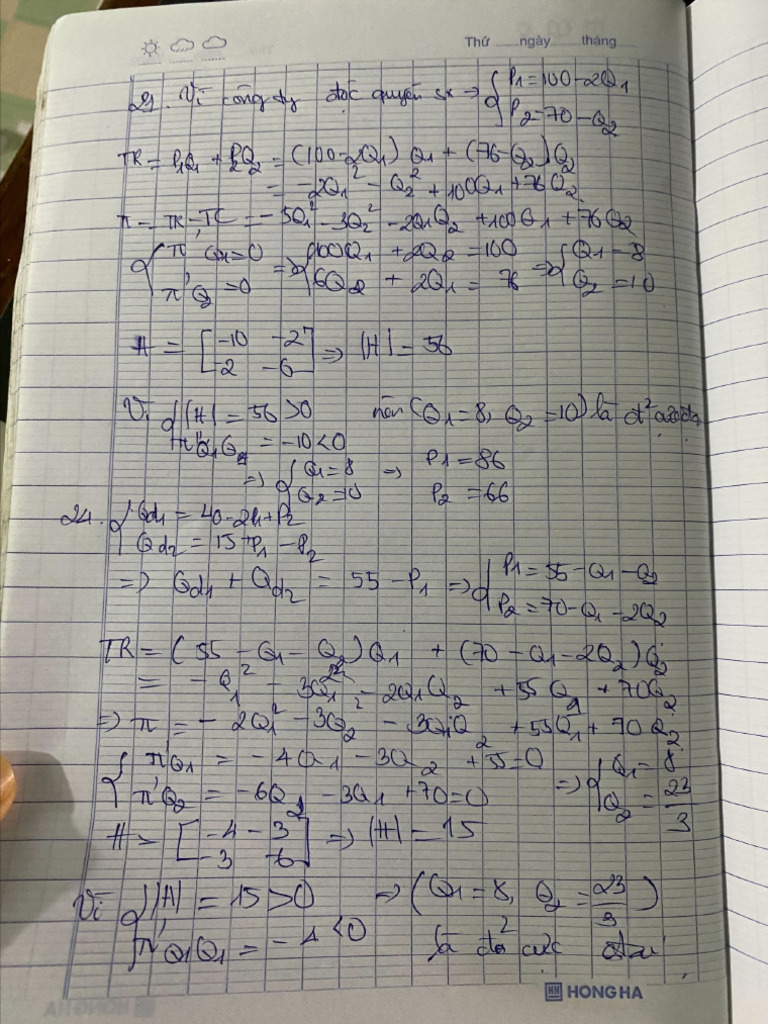 Thứ ..... ngày ..... tháng .....
21. Vì công ty độc quyền sx => { P1 = 100 - 2Q1
P2 = 70 - Q2
TR = P1Q1 + P2Q2 = (100 - 2Q1) Q1 + (76 - Q2) Q2
= -2Q1² - Q2² + 100Q1 + 76Q2
π = TR - TC = -5Q1² - 3Q2² - 2Q1Q2 + 100Q1 + 76Q2
{ π'Q1 = 0 => { 100Q1 + 2Q2 = 100 => { Q1 = 8
π'Q2 = 0 6Q2 + 2Q1 = 76 Q2 = 10
H = [ -10 -2 => |H| = 56
-2 -6 ]
Vì { |H| = 56 > 0 nên (Q1 = 8, Q2 = 10) là đ² cực đại
π''Q1Q = -10 < 0
=> { Q1 = 8 => P1 = 86
Q2 = 10 P2 = 66
24. { Qd1 = 40 - 2P1 + P2
Qd2 = 15 + P1 - P2
=> Qd1 + Qd2 = 55 - P1 => { P1 = 55 - Q1 - Q2
P2 = 70 - Q1 - 2Q2
TR = (55 - Q1 - Q2) Q1 + (70 - Q1 - 2Q2) Q2
= -Q1² - - 2Q1Q2 + 55Q1 + 70Q2
=> π = -2Q1² - 3Q2² - 3Q1Q2 + 55Q1 + 70Q2
{ π'Q1 = -4Q1 - 3Q2 + 55 = 0 => { Q1 = 8
π'Q2 = -6Q2 - 3Q1 + 70 = 0 Q2 = 23/3
H = [ -4 -3 => |H| = 15
-3 -6 ]
Vì { |H| = 15 > 0 => (Q1 = 8, Q2 = 23/3)
π'Q1Q1 = -4 < 0 là cực đại
HONG HA